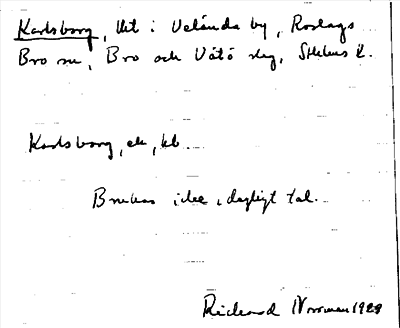 Karlsborg, lht i Velända by, Roslags
Bro sn, Bro och Vätö skg, Sthlms l.
Karlsborg, ek, kb
Brukas icke i dagligt tal.
Rickard Norrman 1928